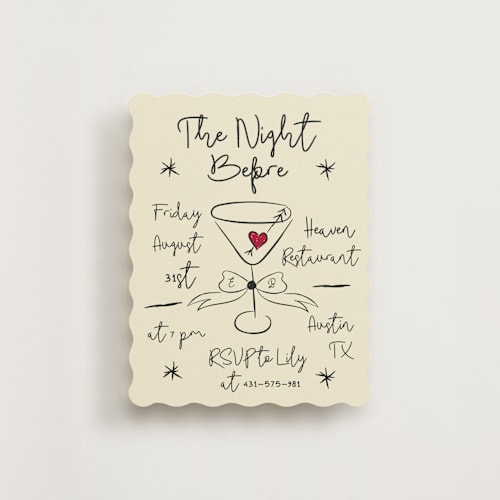 The Night
Before
Friday
August
31st
Heaven
Restaurant
E B
at 7 pm
Austin
TX
RSVP to Lily
at 431-575-981